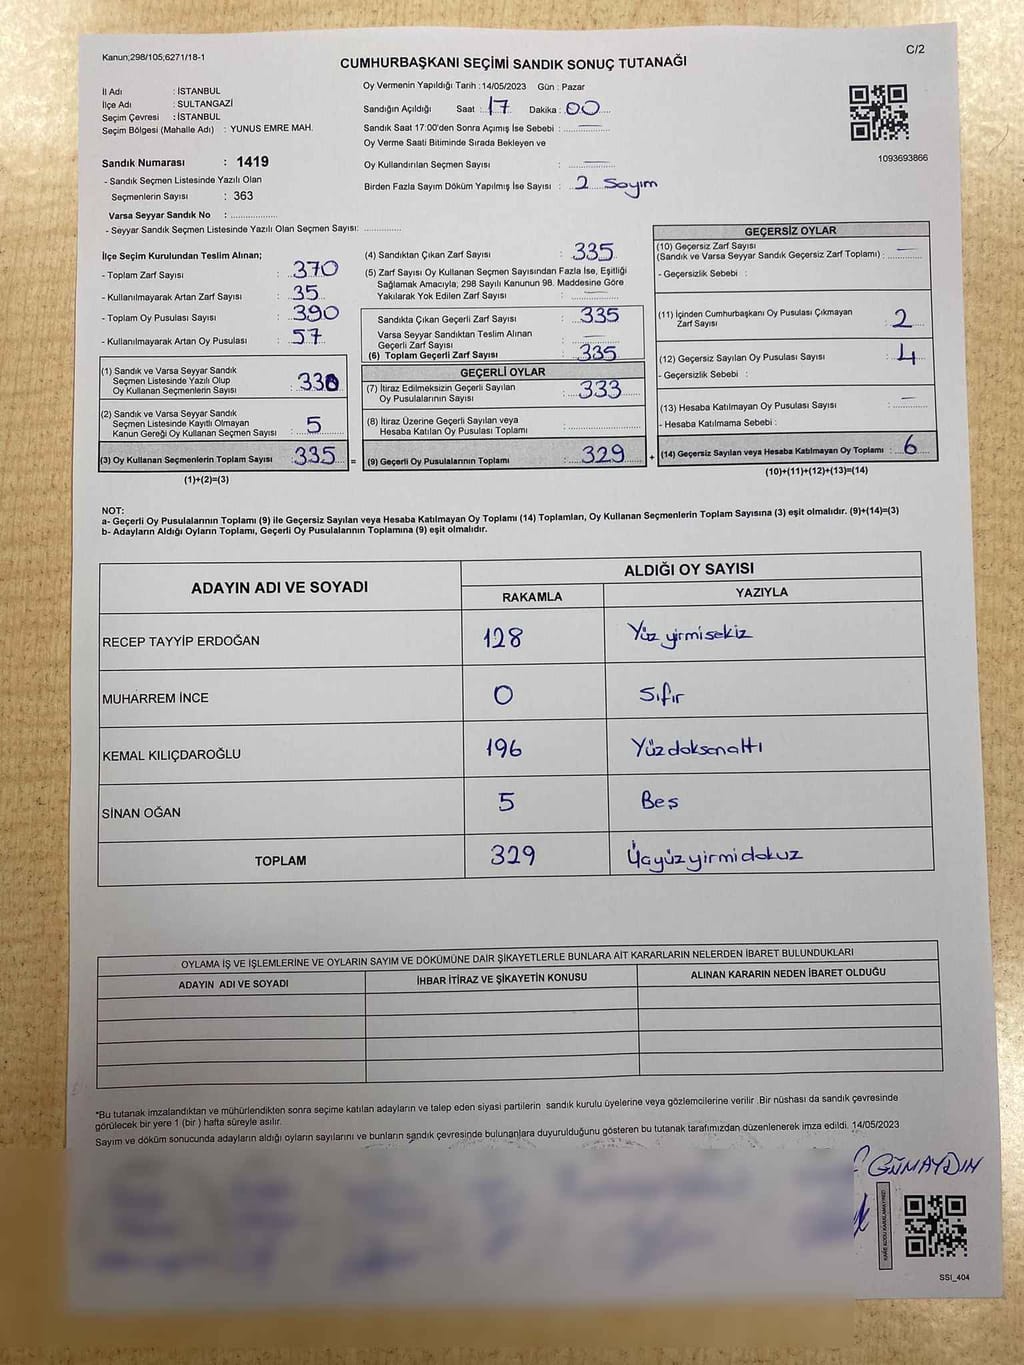 Kanun;298/105;6271/18-1
C/2
CUMHURBAŞKANI SEÇİMİ SANDIK SONUÇ TUTANAĞI
İl Adı : İSTANBUL
İlçe Adı : SULTANGAZİ
Seçim Çevresi : İSTANBUL
Seçim Bölgesi (Mahalle Adı) : YUNUS EMRE MAH.
Sandık Numarası : 1419
- Sandık Seçmen Listesinde Yazılı Olan
Seçmenlerin Sayısı : 363
Varsa Seyyar Sandık No : ..................
- Seyyar Sandık Seçmen Listesinde Yazılı Olan Seçmen Sayısı: ..............
Oy Vermenin Yapıldığı Tarih :14/05/2023 Gün : Pazar
Sandığın Açıldığı Saat : 17 Dakika : 00
Sandık Saat 17:00'den Sonra Açımış İse Sebebi : —
Oy Verme Saati Bitiminde Sırada Bekleyen ve
Oy Kullandırılan Seçmen Sayısı : —
Birden Fazla Sayım Döküm Yapılmış İse Sayısı : 2 Sayım
1093693866
İlçe Seçim Kurulundan Teslim Alınan;
- Toplam Zarf Sayısı : 370
- Kullanılmayarak Artan Zarf Sayısı : 35
- Toplam Oy Pusulası Sayısı : 390
- Kullanılmayarak Artan Oy Pusulası : 57
(1) Sandık ve Varsa Seyyar Sandık
Seçmen Listesinde Yazılı Olup
Oy Kullanan Seçmenlerin Sayısı : 330
(2) Sandık ve Varsa Seyyar Sandık
Seçmen Listesinde Kayıtlı Olmayan
Kanun Gereği Oy Kullanan Seçmen Sayısı : 5
(3) Oy Kullanan Seçmenlerin Toplam Sayısı : 335 =
(1)+(2)=(3)
(4) Sandıktan Çıkan Zarf Sayısı : 335
(5) Zarf Sayısı Oy Kullanan Seçmen Sayısından Fazla İse, Eşitliği
Sağlamak Amacıyla; 298 Sayılı Kanunun 98. Maddesine Göre
Yakılarak Yok Edilen Zarf Sayısı : —
Sandıkta Çıkan Geçerli Zarf Sayısı : 335
Varsa Seyyar Sandıktan Teslim Alınan
Geçerli Zarf Sayısı : —
(6) Toplam Geçerli Zarf Sayısı : 335
GEÇERLİ OYLAR
(7) İtiraz Edilmeksizin Geçerli Sayılan
Oy Pusulalarının Sayısı : 333
(8) İtiraz Üzerine Geçerli Sayılan veya
Hesaba Katılan Oy Pusulası Toplamı : ..................
(9) Geçerli Oy Pusulalarının Toplamı : 329 +
GEÇERSİZ OYLAR
(10) Geçersiz Zarf Sayısı
(Sandık ve Varsa Seyyar Sandık Geçersiz Zarf Toplamı) : —
- Geçersizlik Sebebi :
(11) İçinden Cumhurbaşkanı Oy Pusulası Çıkmayan
Zarf Sayısı : 2
(12) Geçersiz Sayılan Oy Pusulası Sayısı : 4
- Geçersizlik Sebebi :
(13) Hesaba Katılmayan Oy Pusulası Sayısı : —
- Hesaba Katılmama Sebebi :
(14) Geçersiz Sayılan veya Hesaba Katılmayan Oy Toplamı : 6
(10)+(11)+(12)+(13)=(14)
NOT:
a- Geçerli Oy Pusulalarının Toplamı (9) ile Geçersiz Sayılan veya Hesaba Katılmayan Oy Toplamı (14) Toplamları, Oy Kullanan Seçmenlerin Toplam Sayısına (3) eşit olmalıdır. (9)+(14)=(3)
b- Adayların Aldığı Oyların Toplamı, Geçerli Oy Pusulalarının Toplamına (9) eşit olmalıdır.
ADAYIN ADI VE SOYADI
ALDIĞI OY SAYISI
RAKAMLA YAZIYLA
RECEP TAYYİP ERDOĞAN 128 Yüz yirmisekiz
MUHARREM İNCE 0 Sıfır
KEMAL KILIÇDAROĞLU 196 Yüzdoksanaltı
SİNAN OĞAN 5 Beş
TOPLAM 329 Üçyüzyirmidokuz
OYLAMA İŞ VE İŞLEMLERİNE VE OYLARIN SAYIM VE DÖKÜMÜNE DAİR ŞİKAYETLERLE BUNLARA AİT KARARLARIN NELERDEN İBARET BULUNDUKLARI
ADAYIN ADI VE SOYADI İHBAR İTİRAZ VE ŞİKAYETİN KONUSU ALINAN KARARIN NEDEN İBARET OLDUĞU
*Bu tutanak imzalandıktan ve mühürlendikten sonra seçime katılan adayların ve talep eden siyasi partilerin sandık kurulu üyelerine veya gözlemcilerine verilir .Bir nüshası da sandık çevresinde
görülecek bir yere 1 (bir ) hafta süreyle asılır.
Sayım ve döküm sonucunda adayların aldığı oyların sayılarını ve bunların sandık çevresinde bulunanlara duyurulduğunu gösteren bu tutanak tarafımızdan düzenlenerek imza edildi. 14/05/2023
GÜNAYDIN
SSI_404